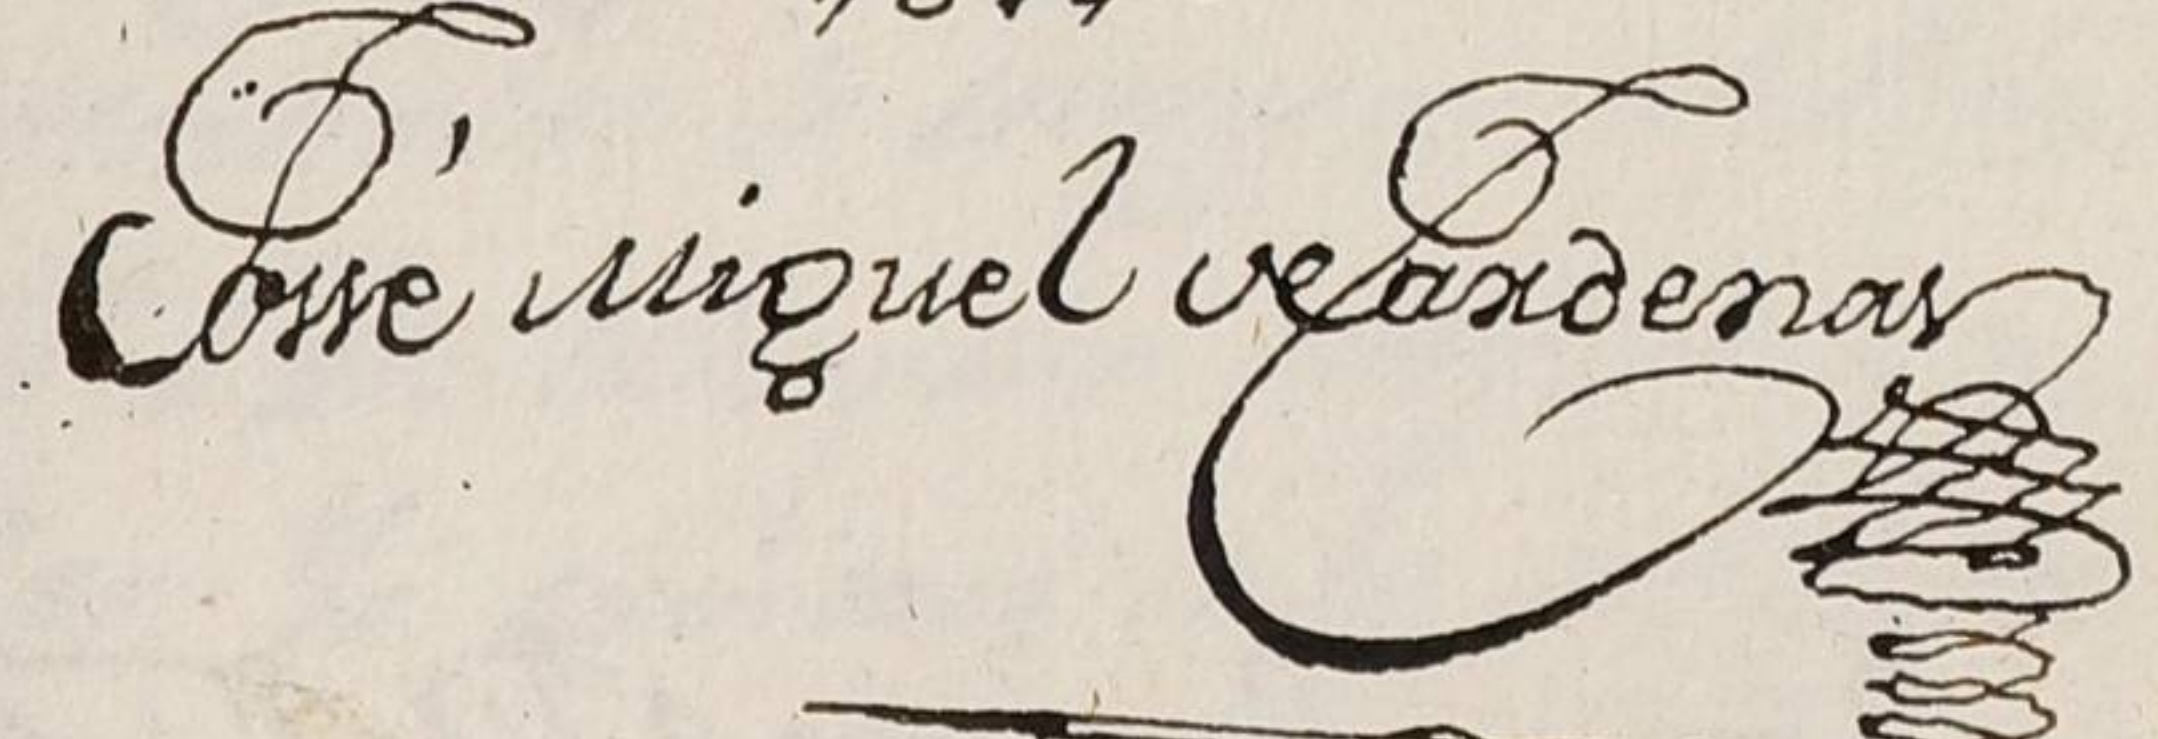 Jossé Miguel de Cardenas